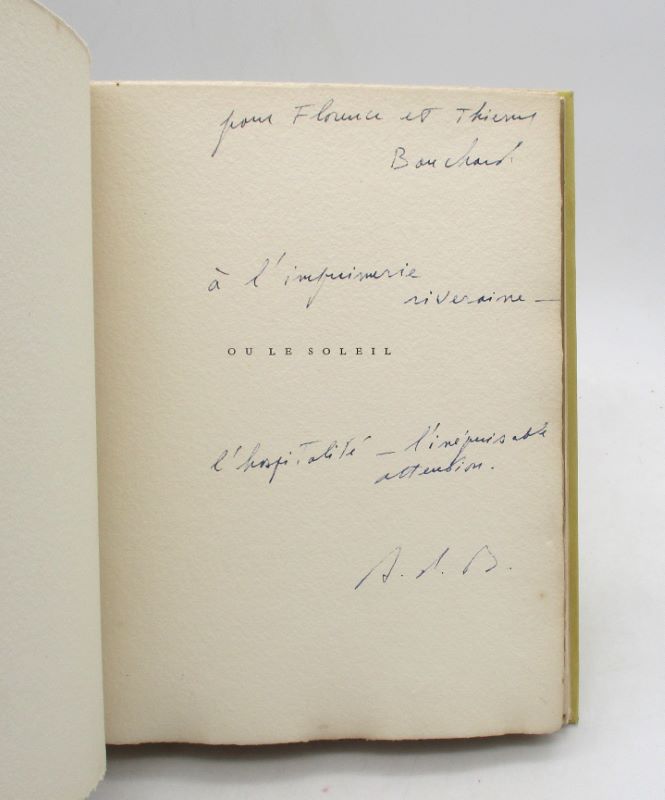 pour Florence et Thierry
Bouchard
à l'imprimerie
riveraine —
OU LE SOLEIL
l'hospitalité — l'inépuisable
attention.
A. d. B.